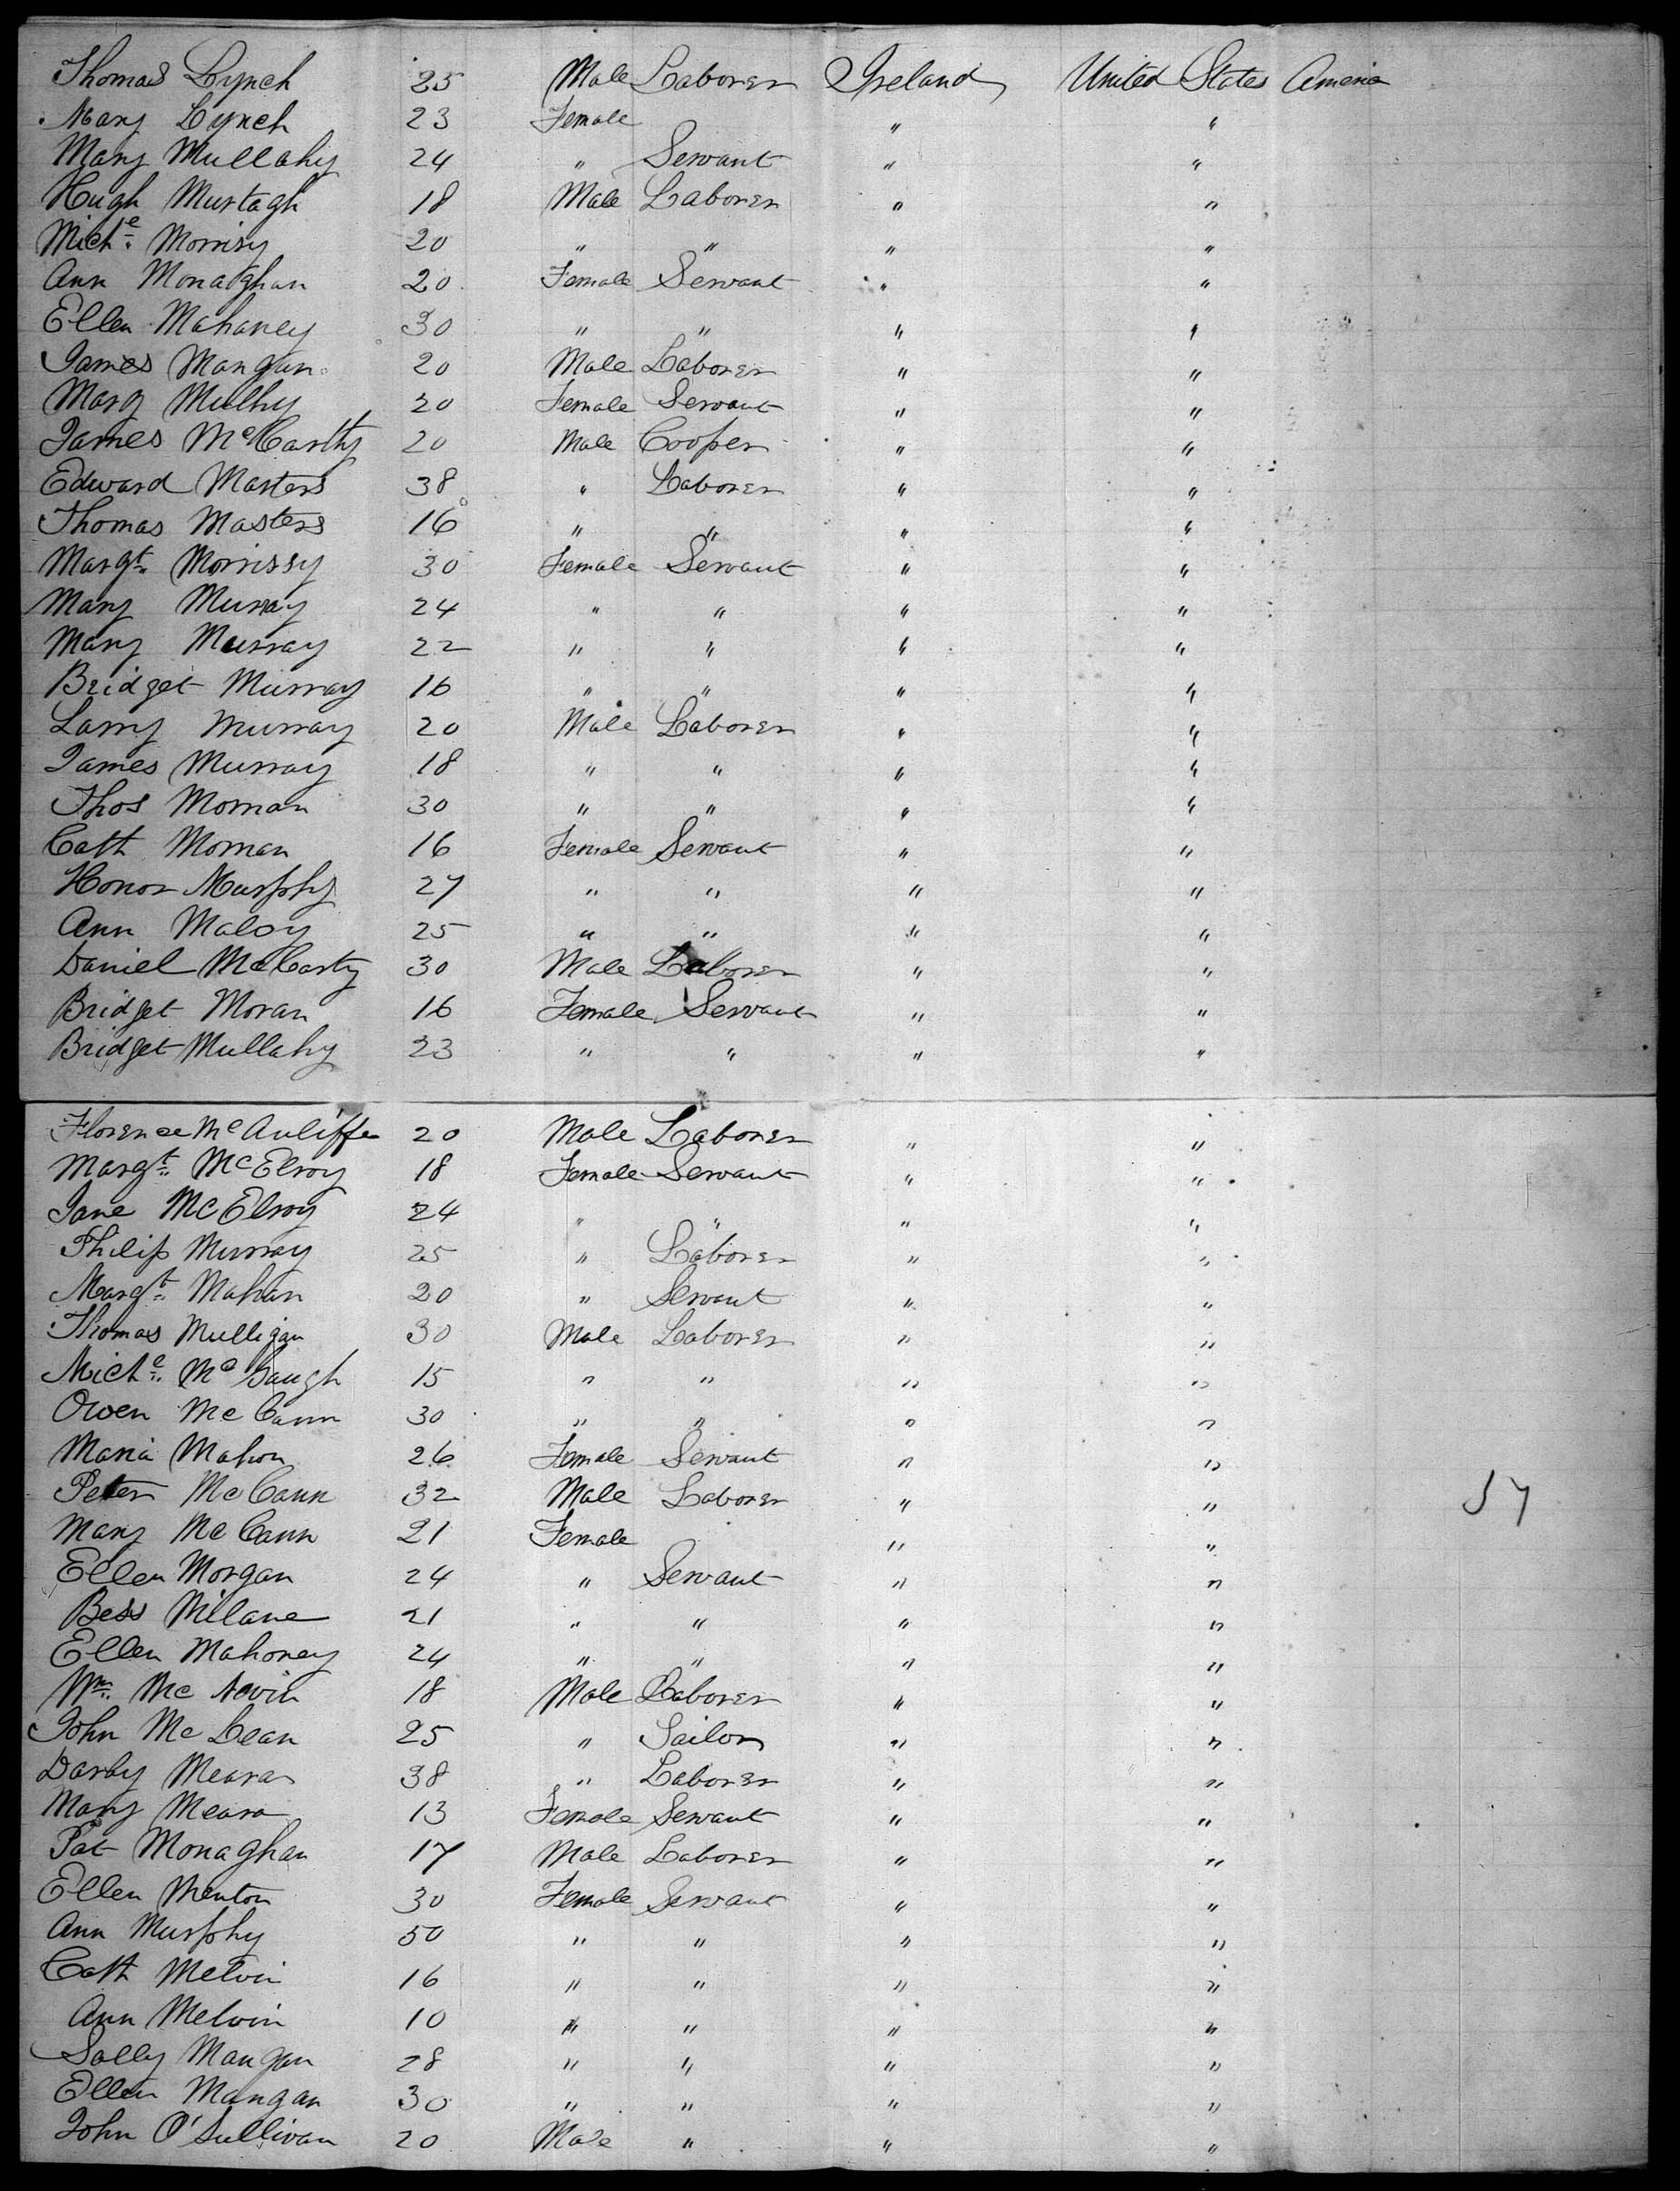 Thomas Lynch 25 Male Laborer Ireland United States America
Mary Lynch 23 Female " "
Mary Mullahy 24 " Servant " "
Hugh Murtagh 18 Male Laborer " "
Miche. Morrisy 20 " " " "
Ann Monaghan 20 Female Servant " "
Ellen Mahaney 30 " " " "
James Mangan 20 Male Laborer " "
Mary 20 Female Servant " "
James McCarthy 20 Male Cooper " "
Edward Masters 38 " Laborer " "
Thomas Masters 16 " " " "
Margt. Morrissy 30 Female Servant " "
Mary Murray 24 " " " "
Mary Murray 22 " " " "
Bridget Murray 16 " " " "
Larry Murray 20 Male Laborer " "
James Murray 18 " " " "
Thos Mornan 30 " " " "
Cath Mornan 16 Female Servant " "
Honor Murphy 27 " " " "
Ann Maloy 25 " " " "
Daniel McCarty 30 Male Laborer " "
Bridget Moran 16 Female Servant " "
Bridget Mullahy 23 " " " "
Florence McAuliffe 20 Male Laborer " "
Margt. McElroy 18 Female Servant " "
Jane McElroy 24 " " " "
Philip Murray 25 " Laborer " "
Margt. Mahan 20 " Servant " "
Thomas Mulligan 30 Male Laborer " "
Miche. Mc 15 " " " "
Owen McCann 30 " " " "
Maria Mahon 26 Female Servant " "
Peter McCann 32 Male Laborer " " 57
Mary McCann 21 Female " "
Ellen Morgan 24 " Servant " "
Bess Milane 21 " " " "
Ellen Mahoney 24 " " " "
Wm. McNevin 18 Male Laborer " "
John McLean 25 " Sailor " "
Darby Meara 38 " Laborer " "
Mary Meara 13 Female Servant " "
Pat Monaghan 17 Male Laborer " "
Ellen Menton 30 Female Servant " "
Ann Murphy 50 " " " "
Cath Melvin 16 " " " "
Ann Melvin 10 " " " "
Sally Mangan 28 " " " "
Ellen Mangan 30 " " " "
John O'Sullivan 20 Male " " "